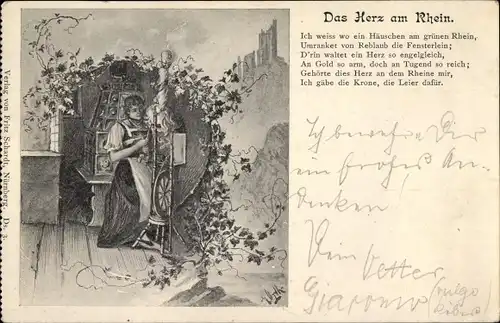 Das Herz am Rhein.
Ich weiss wo ein Häuschen am grünen Rhein,
Umranket von Reblaub die Fensterlein;
D'rin waltet ein Herz so engelgleich,
An Gold so arm, doch an Tugend so reich;
Gehörte dies Herz an dem Rheine mir,
Ich gäbe die Krone, die Leier dafür.
Ich bewahre Dir
ein frohes An-
denken!
Dein Vetter
Giacomo (vulgo
Verlag von Fritz Schardt, Nürnberg. Ds. 3.